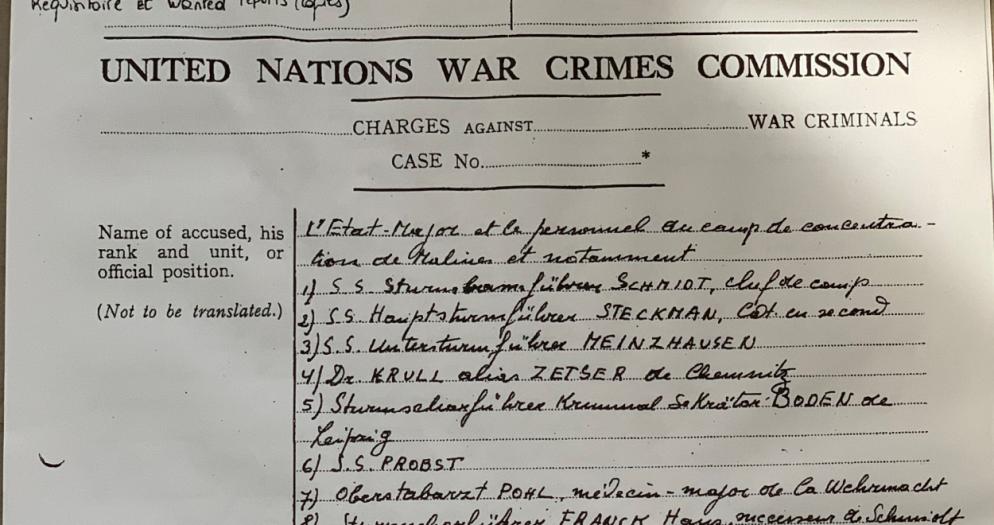 Requisitoire et Wanted reports (copies)
UNITED NATIONS WAR CRIMES COMMISSION
CHARGES AGAINST WAR CRIMINALS
CASE No. *
Name of accused, his
rank and unit, or
official position.
(Not to be translated.)
L'Etat-Major et le personnel du camp de concentra-
tion de Malines et notamment
1) S.S. Sturmbannführer SCHMIDT, chef de camp
2) S.S. Hauptsturmführer STECKMAN, Cdt en second
3) S.S. Untersturmführer MEINZHAUSEN
4) Dr. KRULL alias ZETSER de Chemnitz
5) Sturmscharführer Kriminal Sekrätar BODEN de
Leipzig
6) S.S. PROBST
7) Oberstabarzt POHL, médecin-major de la Wehrmacht
8) FRANCK Hans, successeur de Schmidt